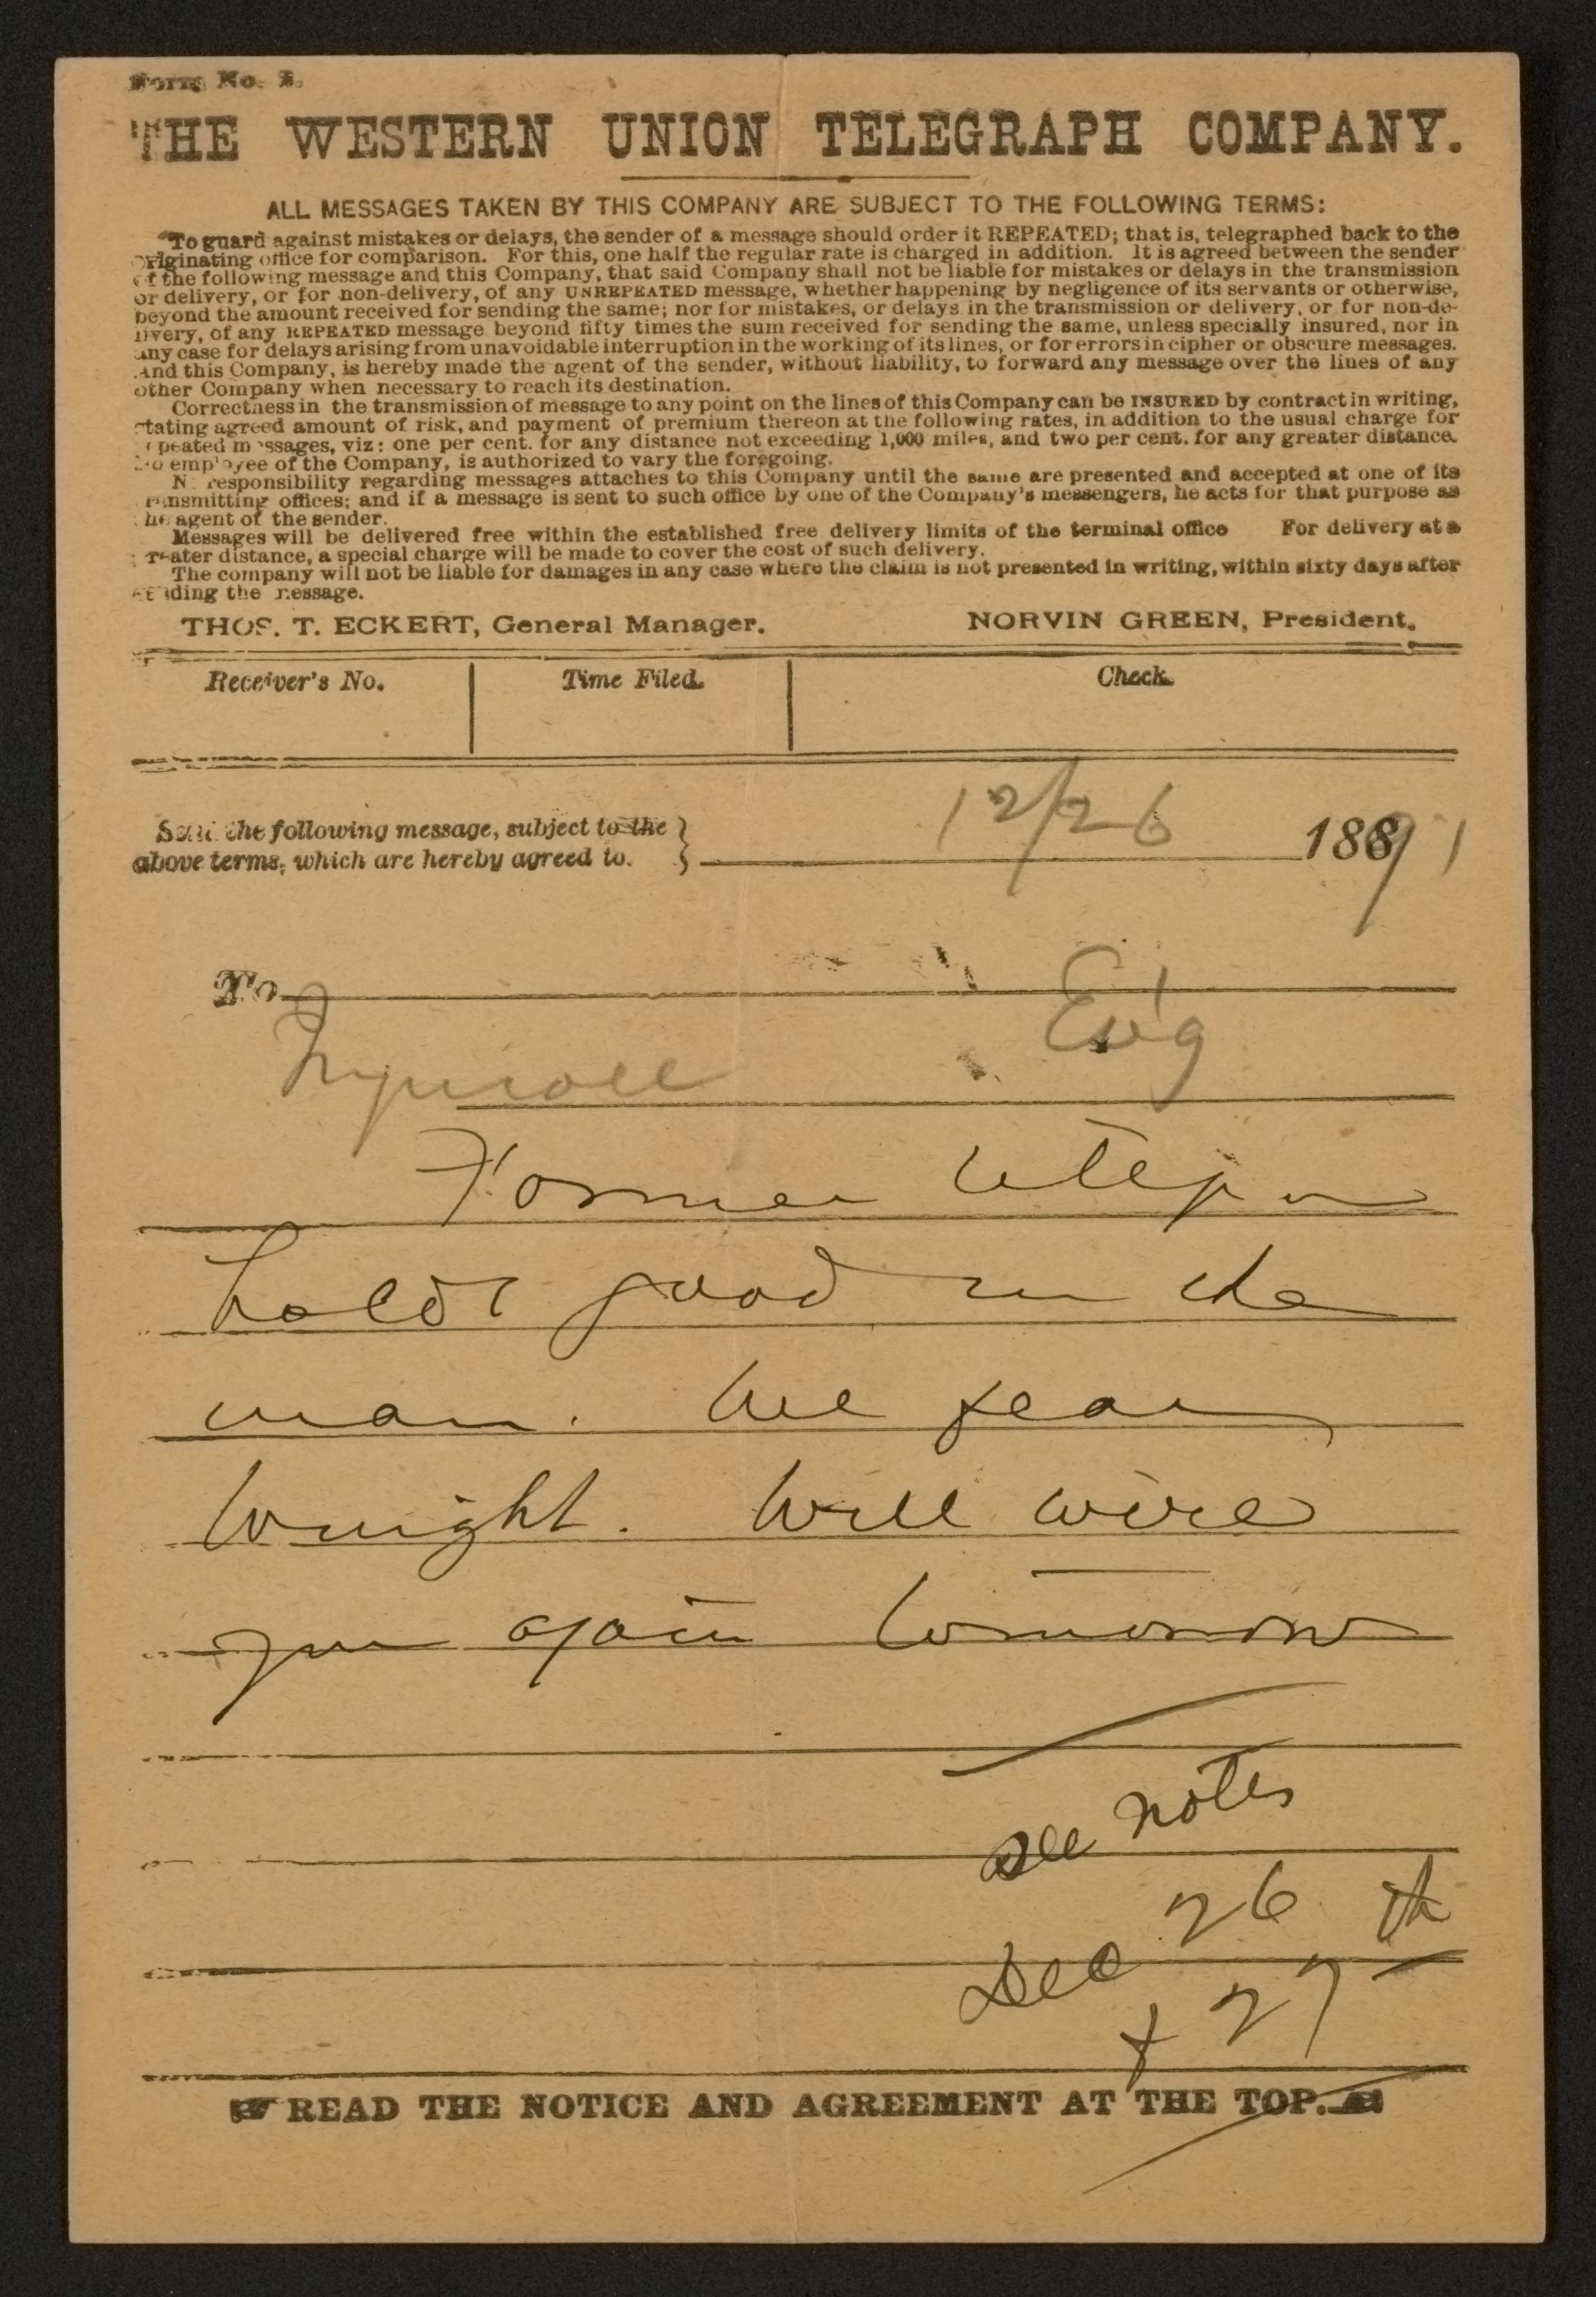 Form No. 2.
THE WESTERN UNION TELEGRAPH COMPANY.
ALL MESSAGES TAKEN BY THIS COMPANY ARE SUBJECT TO THE FOLLOWING TERMS:
To guard against mistakes or delays, the sender of a message should order it REPEATED; that is, telegraphed back to the
originating office for comparison. For this, one half the regular rate is charged in addition. It is agreed between the sender
of the following message and this Company, that said Company shall not be liable for mistakes or delays in the transmission
or delivery, or for non-delivery, of any UNREPEATED message, whether happening by negligence of its servants or otherwise,
beyond the amount received for sending the same; nor for mistakes, or delays in the transmission or delivery, or for non-de-
livery, of any REPEATED message beyond fifty times the sum received for sending the same, unless specially insured, nor in
any case for delays arising from unavoidable interruption in the working of its lines, or for errors in cipher or obscure messages.
And this Company, is hereby made the agent of the sender, without liability, to forward any message over the lines of any
other Company when necessary to reach its destination.
Correctness in the transmission of message to any point on the lines of this Company can be INSURED by contract in writing,
stating agreed amount of risk, and payment of premium thereon at the following rates, in addition to the usual charge for
repeated messages, viz: one per cent. for any distance not exceeding 1,000 miles, and two per cent. for any greater distance.
No employee of the Company, is authorized to vary the foregoing.
No responsibility regarding messages attaches to this Company until the same are presented and accepted at one of its
transmitting offices; and if a message is sent to such office by one of the Company's messengers, he acts for that purpose as
the agent of the sender.
Messages will be delivered free within the established free delivery limits of the terminal office For delivery at a
greater distance, a special charge will be made to cover the cost of such delivery.
The company will not be liable for damages in any case where the claim is not presented in writing, within sixty days after
sending the message.
THOS. T. ECKERT, General Manager. NORVIN GREEN, President.
Receiver's No. Time Filed. Check.
12/26
Send the following message, subject to the
above terms, which are hereby agreed to. 1891
To
Eng
Former
holds good in the
man. We fear
Wright. Will wire
you again tomorrow
See notes
Dec 26th
+ 27
READ THE NOTICE AND AGREEMENT AT THE TOP.